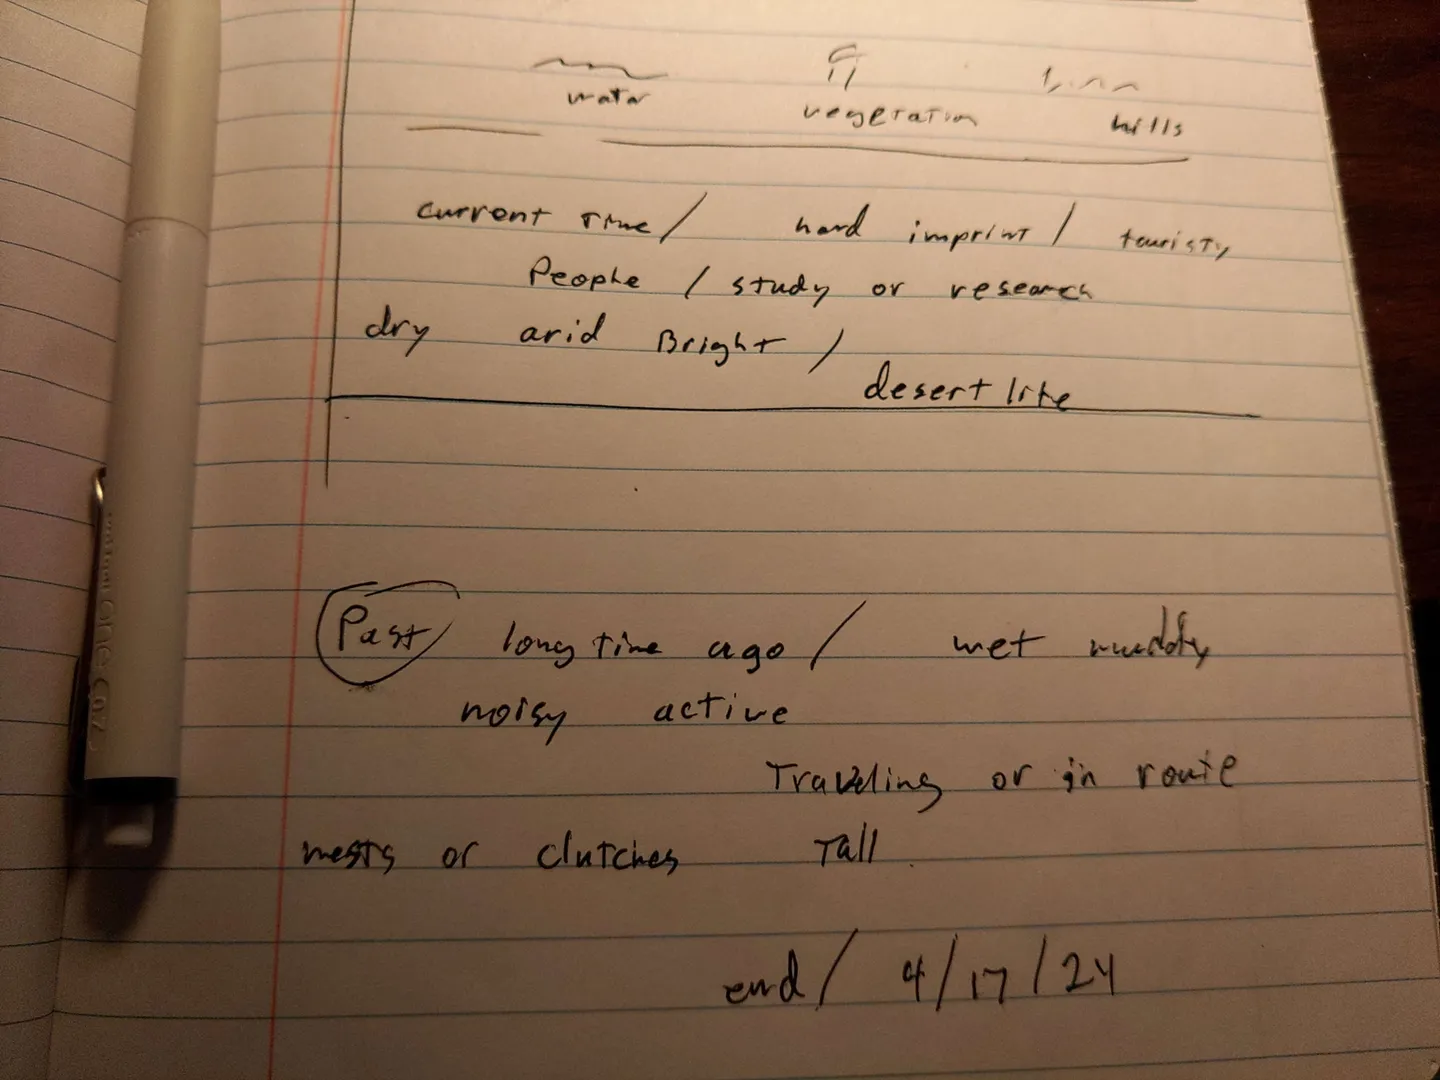 water vegetation hills
current Time / hard imprint / touristy
People / study or research
dry arid Bright /
desert like
Past long time ago / wet muddy
noisy active
Traveling or in route
nests or clutches Tall
end / 4/17/24